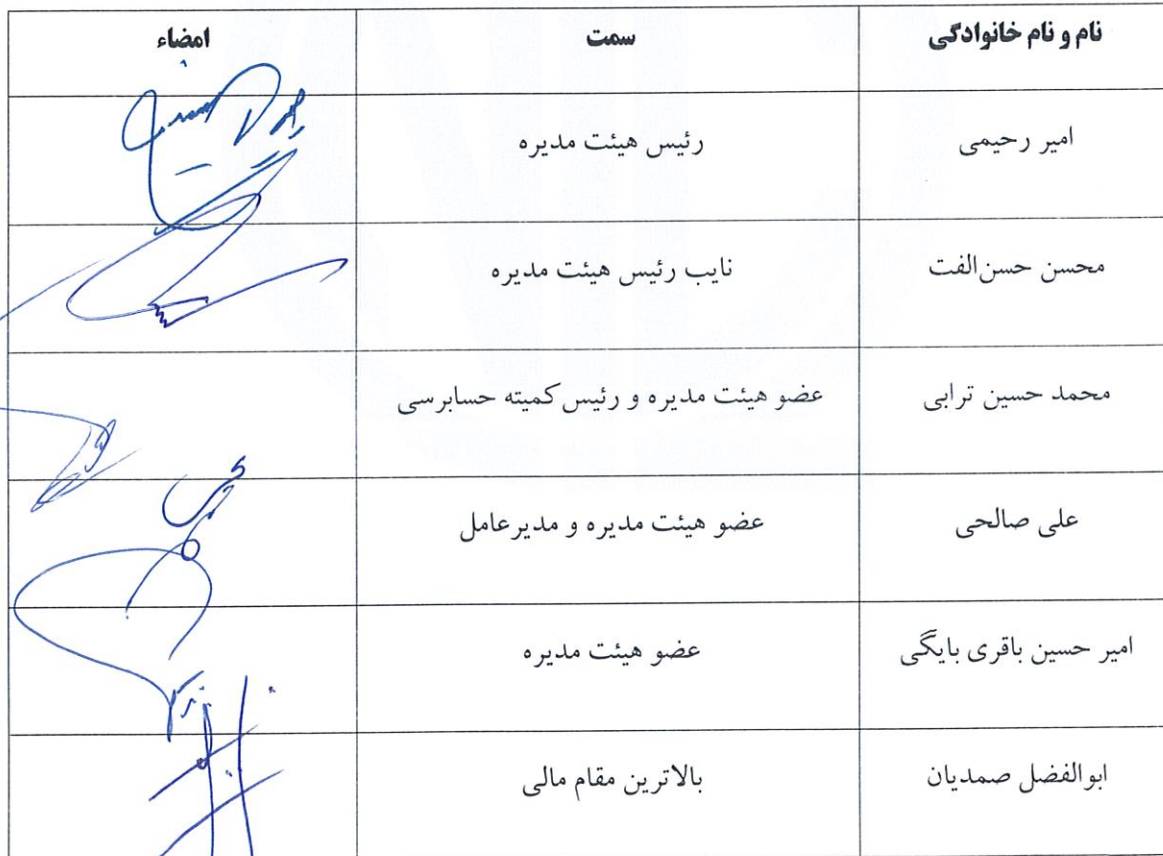 نام و نام خانوادگی سمت امضاء
امیر رحیمی رئیس هیئت مدیره
محسن حسن‌الفت نایب رئیس هیئت مدیره
محمد حسین ترابی عضو هیئت مدیره و رئیس کمیته حسابرسی
علی صالحی عضو هیئت مدیره و مدیرعامل
امیر حسین باقری بایگی عضو هیئت مدیره
ابوالفضل صمدیان بالاترین مقام مالی